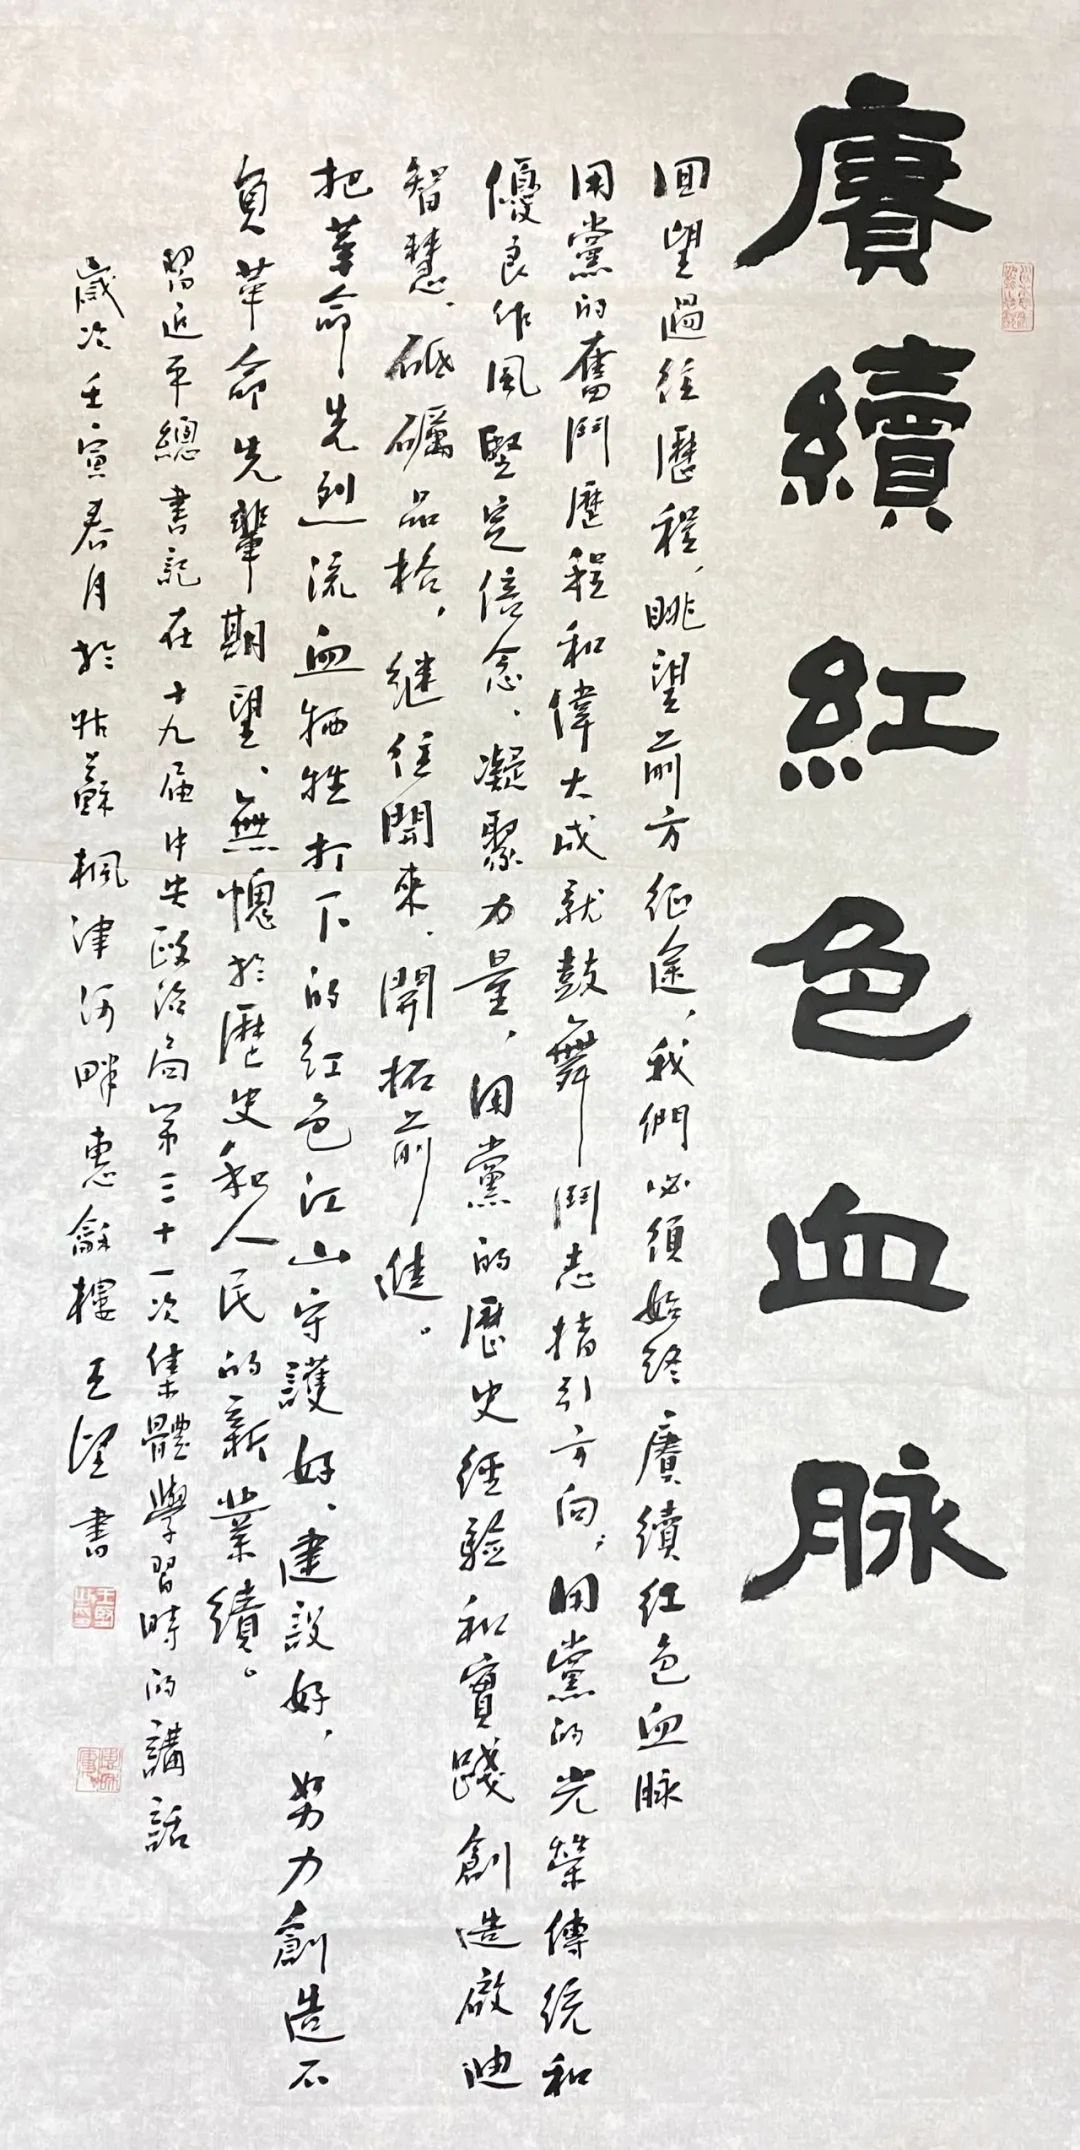 賡續紅色血脉
回望過往歷程，眺望前方征途，我們必須始終賡續红色血脉
用黨的奮鬥歷程和偉大成就鼓舞鬥志指引方向；用黨的光榮傳統和
優良作風堅定信念、凝聚力量，用黨的歷史經驗和實踐創造啟迪
智慧、砥礪品格，继往開來、開拓前進。
把革命先烈流血牺牲打下的红色江山守護好、建設好，努力創造不
負革命先輩期望、無愧於歷史和人民的新業績。
習近平總書記在十九届中央政治局第三十一次集體學習時的講話
歲次壬寅春月於姑蘇楓津河畔惠龢樓王望書